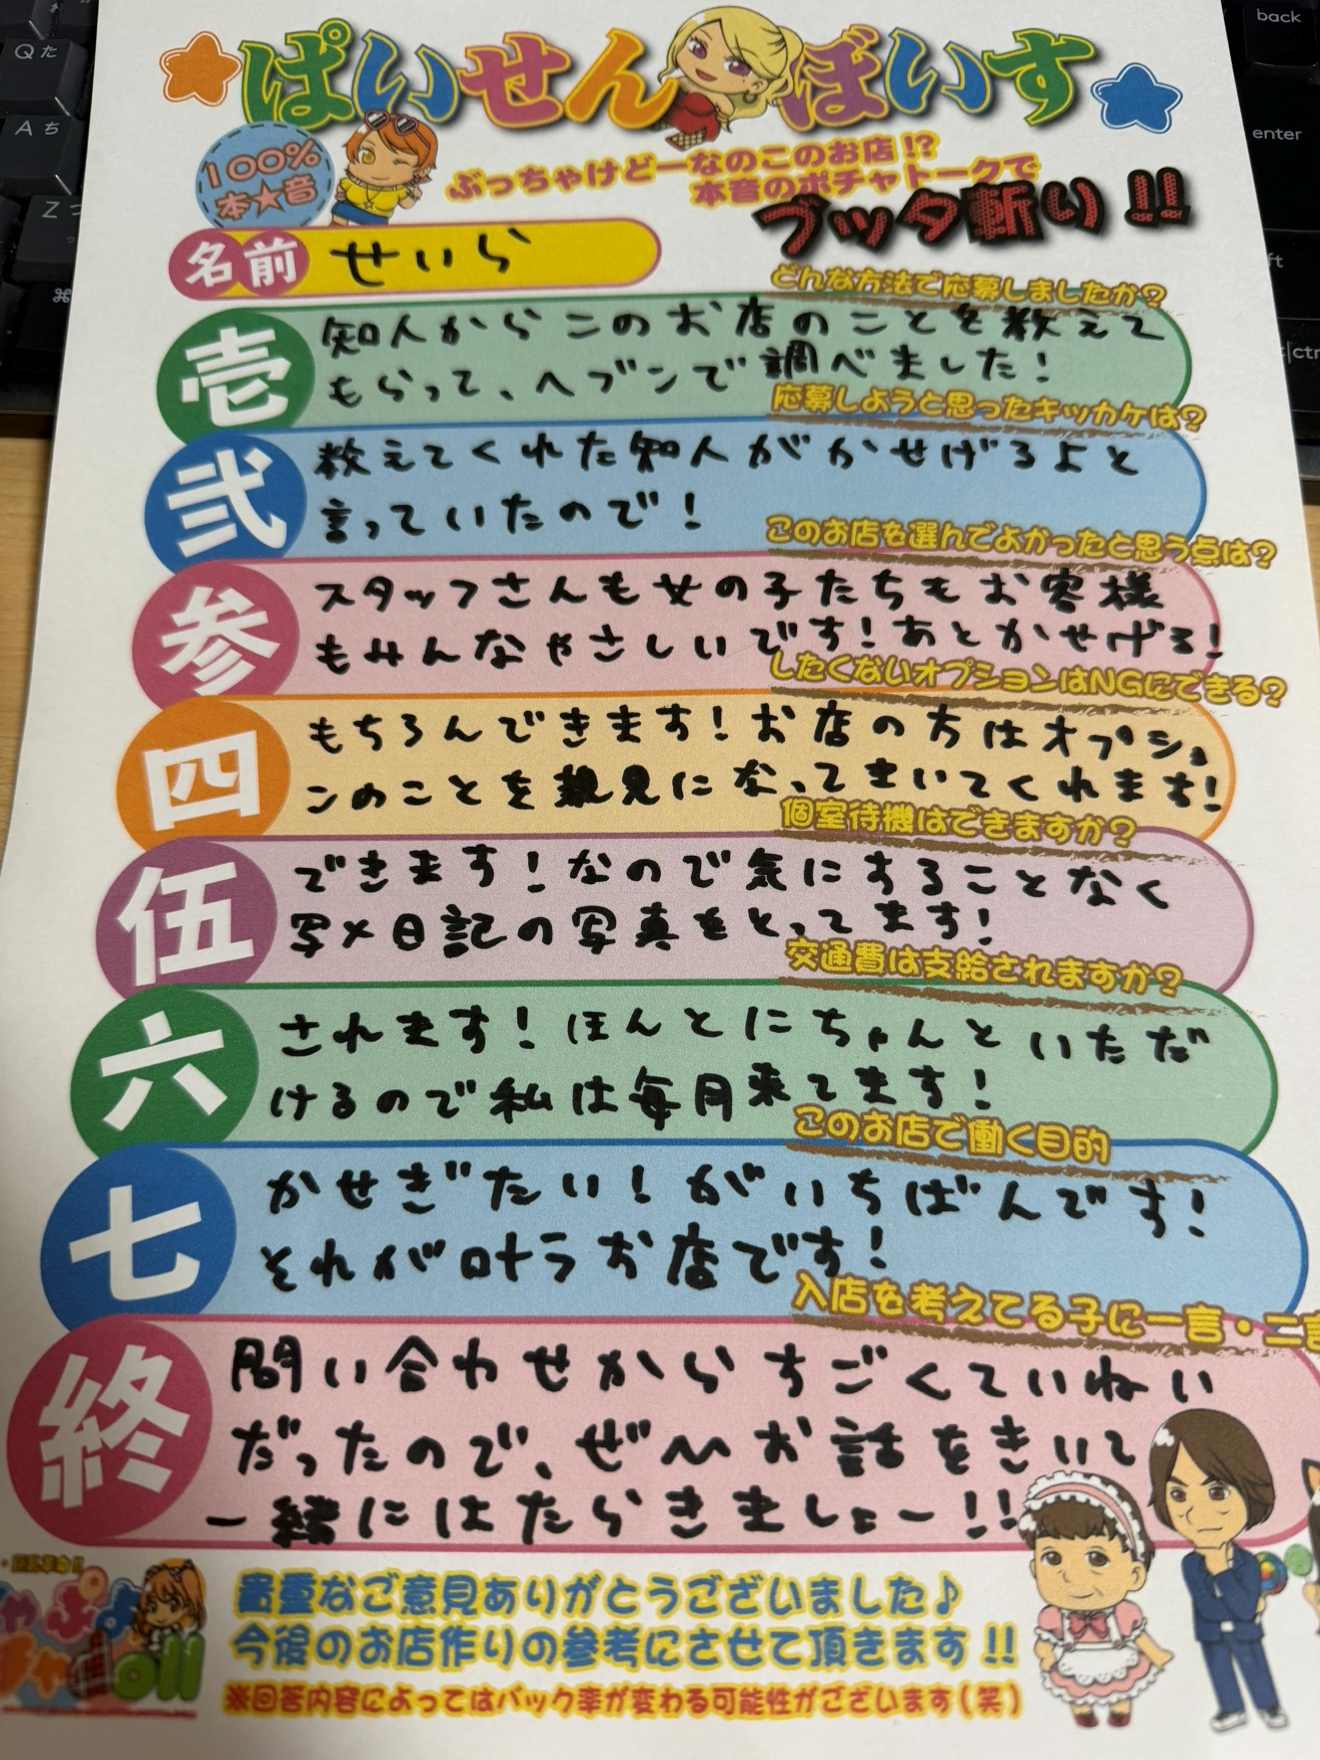 ぱいせんぼいす
100%
本★音
ぶっちゃけどーなのこのお店!?
本音のポチャトークで
ブッタ斬り!!
名前 せいら
どんな方法で応募しましたか?
壱
知人からこのお店のことを教えて
もらって、ヘブンで調べました!
応募しようと思ったキッカケは?
弐
教えてくれた知人がかせげるよと
言っていたので!
このお店を選んでよかったと思う点は?
参
スタッフさんも女の子たちもお客様
もみんなやさしいです!あとかせげる!
したくないオプションはNGにできる?
四
もちろんできます!お店の方はオプショ
ンのことを親見になってきいてくれます!
個室待機はできますか?
伍
できます!なので気にすることなく
写メ日記の写真をとってます!
交通費は支給されますか?
六
されます!ほんとにちゃんといただ
けるので私は毎月来てます!
このお店で働く目的
七
かせぎたい!がいちばんです!
それが叶うお店です!
入店を考えてる子に一言・二言
終
問い合わせからすごくていねい
だったので、ぜひお話をきいて
一緒にはたらきましょー!!
貴重なご意見ありがとうございました♪
今後のお店作りの参考にさせて頂きます!!
※回答内容によってはバック率が変わる可能性がございます(笑)
back
enter
Q た
A ち
Z つ